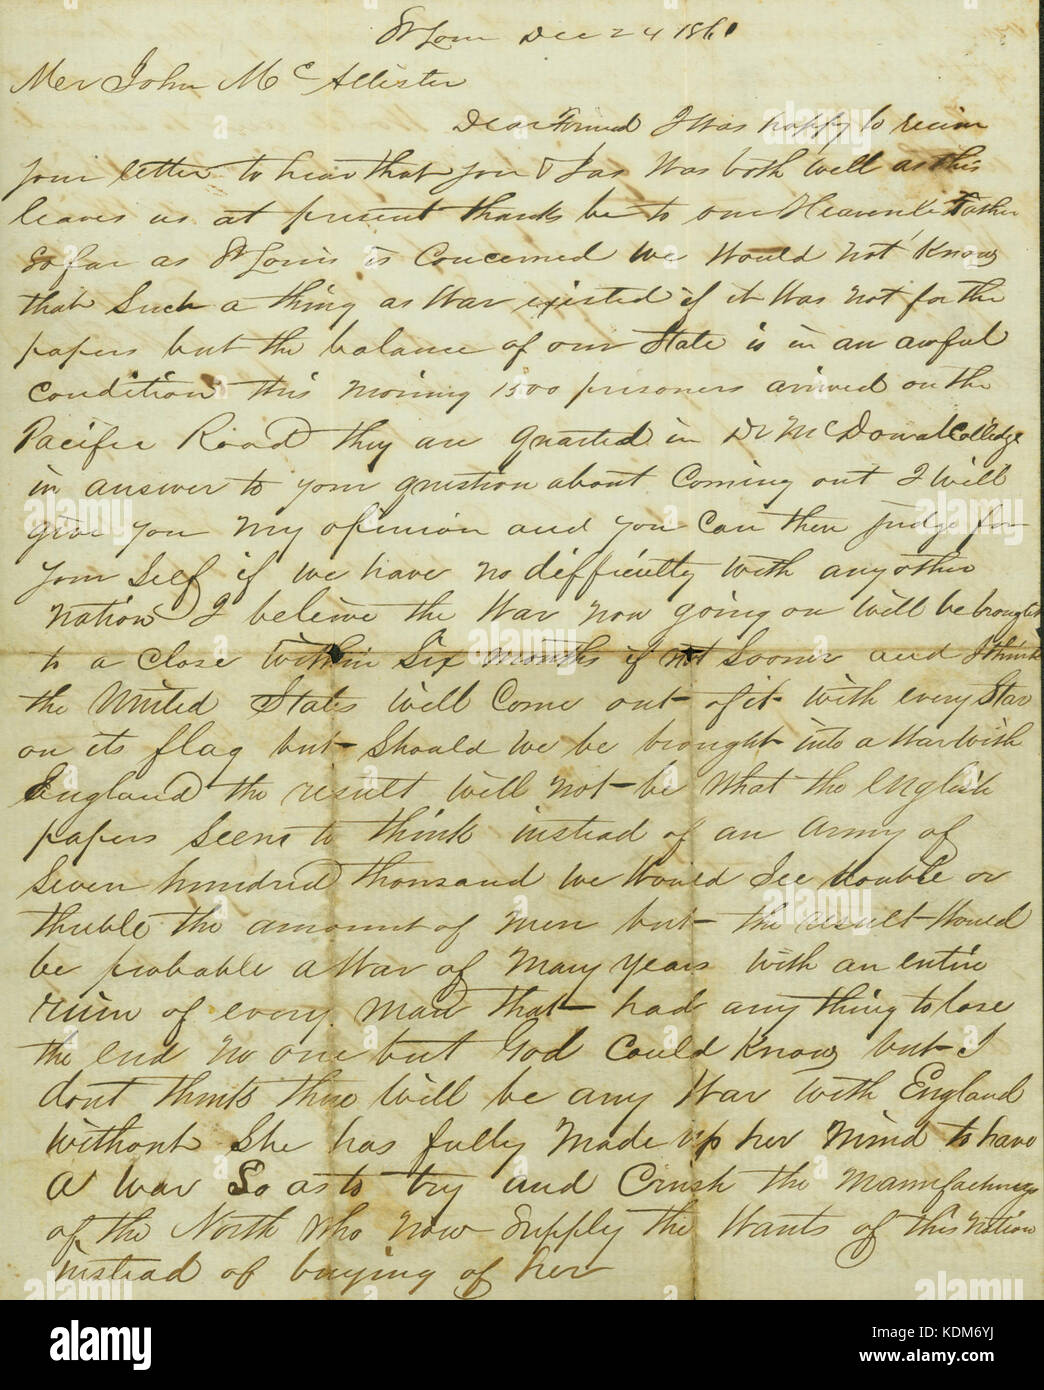 St Louis Dec 24 1861
Mer John Mc Allister
Dear Friend I was happy to recieve
your letter to hear that you & Jas was both well as this
leaves us at present thanks be to our Heavenli Father
so far as St Louis is Concerned we would not Know
that Such a thing as War existed if it was not for the
papers but the balance of our State is in an awful
Condition this morning 1500 prisoners arrived on the
Pacific Road they are quarted in Dr McDowal Colledge
in answer to your question about Coming out I will
give you my opinion and you Can then judge for
your Self if we have no difficulty with any other
nation I beleive the War now going on will be brought
to a close within Six months if not Sooner and I think
the United States will Come out of it with every Star
on its flag but Should we be brought into a War with
England the result will not be what the english
papers seem to think instead of an Army of
Seven hundred thousand we would See double or
thruble the amount of men but the result would
be probable a War of Many years with an entire
ruin of every man that had any thing to lose
the end no one but God Could Know but I
dont think there will be any War with England
without She has fully made up her mind to have
a War So as to try and Crush the manufacturys
of the North who now Supply the Wants of this nation
instead of buying of her
alamy
KDM6YJ
www.alamy.com